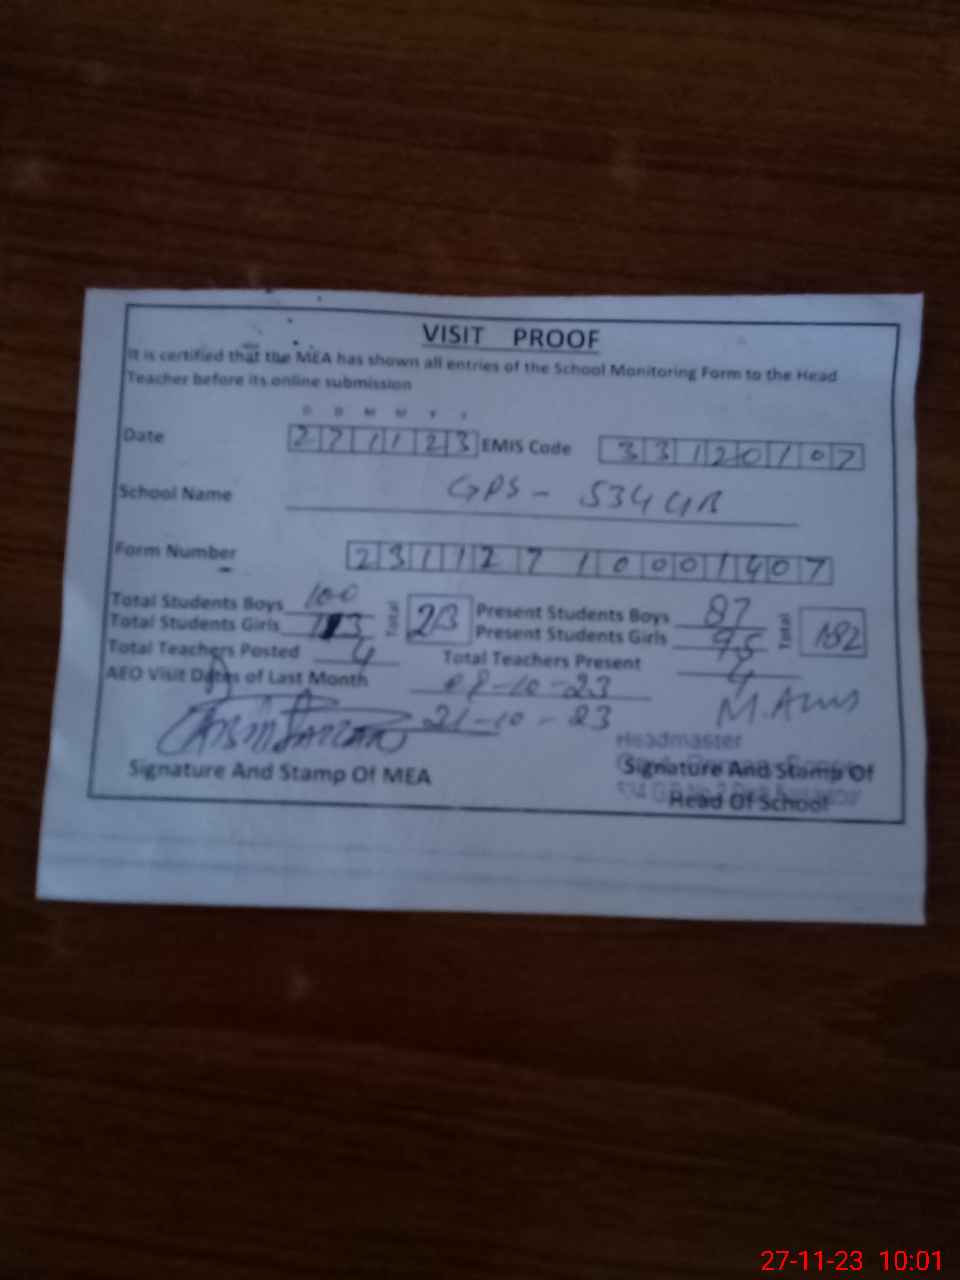 VISIT PROOF
It is certified that the MEA has shown all entries of the School Monitoring Form to the Head
Teacher before its online submission
D D M M Y Y
Date 271123 EMIS Code 33120107
School Name GPS - 534 GB
Form Number 231127 10001407
Total Students Boys 100 Total 213 Present Students Boys 87 Total 182
Total Students Girls 113 Present Students Girls 95
Total Teachers Posted 4 Total Teachers Present 4
AEO Visit Dates of Last Month -10-23
21-10-23
Headmaster
Signature And Stamp Of MEA Signature And Stamp Of
Head Of School
27-11-23 10:01